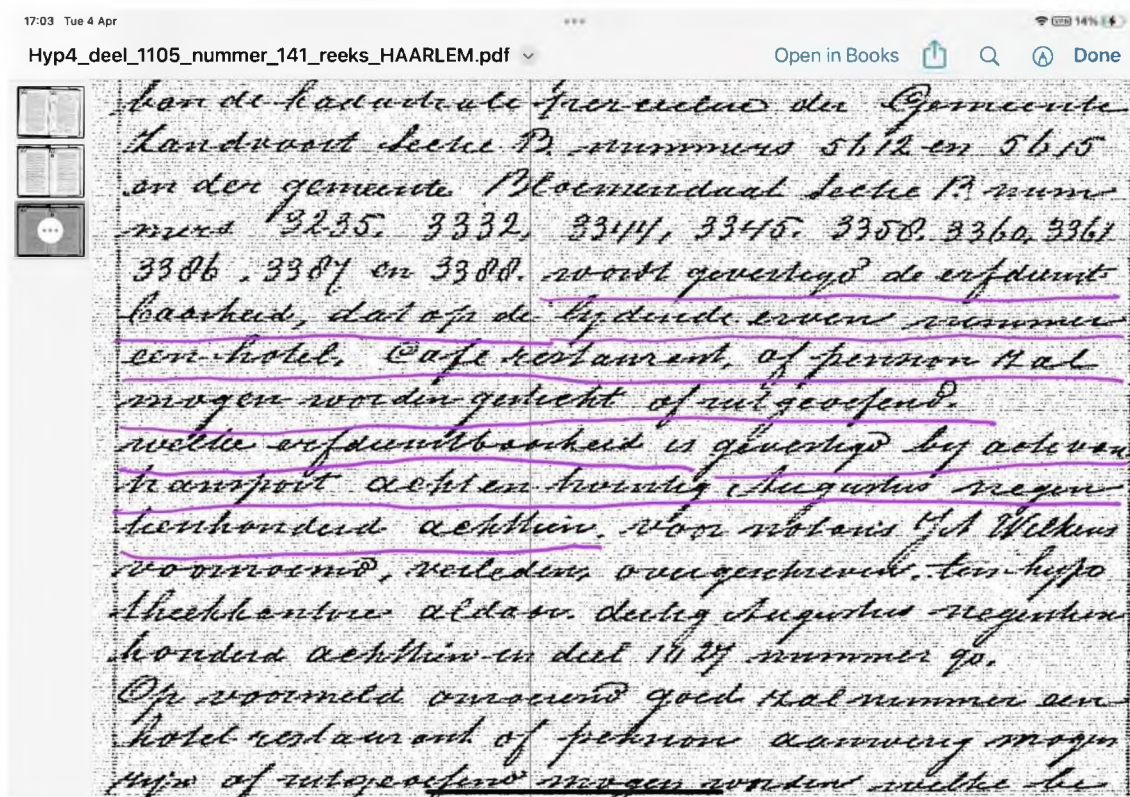 17:03 Tue 4 Apr
14%
Hyp4_deel_1105_nummer_141_reeks_HAARLEM.pdf
Open in Books
Done
van de kadastrale perceelen der Gemeente
Zandvoort Sectie B. nummers 5612 en 5615
en der gemeente Bloemendaal Sectie B num
mers 3235. 3332, 3344, 3345. 3358. 3360. 3361
3386. 3387 en 3388. wordt gevestigd de erfdienst
baarheid, dat op de lydende erven nimmer
een hotel, Cafe restaurant, of pension zal
mogen worden gesticht of uitgeoefend.
welke erfdienstbaarheid is gevestigd by acte van
transport acht en twintig Augustus negen
tienhonderd achttien. voor notaris Wilkens
voornoemd, verleden, overgeschreven. ten hypo
theekkantore aldaar. dertig Augustus negentien
honderd achttien in deel 1027 nummer 90.
Op voormeld onroerend goed zal nimmer een
hotel restaurant of pension aanwezig mogen
zyn of uitgeoefend mogen worden welke be